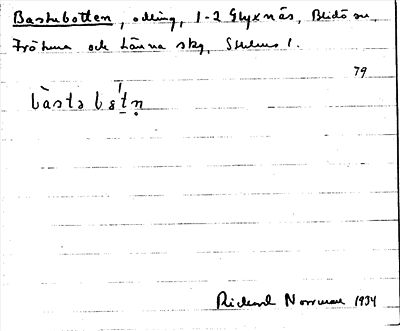 Bastubotten, odling, 1-2 Glyxnäs, Blidö sn,
Frötuna och Länna skg, Sthlms l.
79
bàstəbɷt̠ṇ
Rickard Norrman 1934